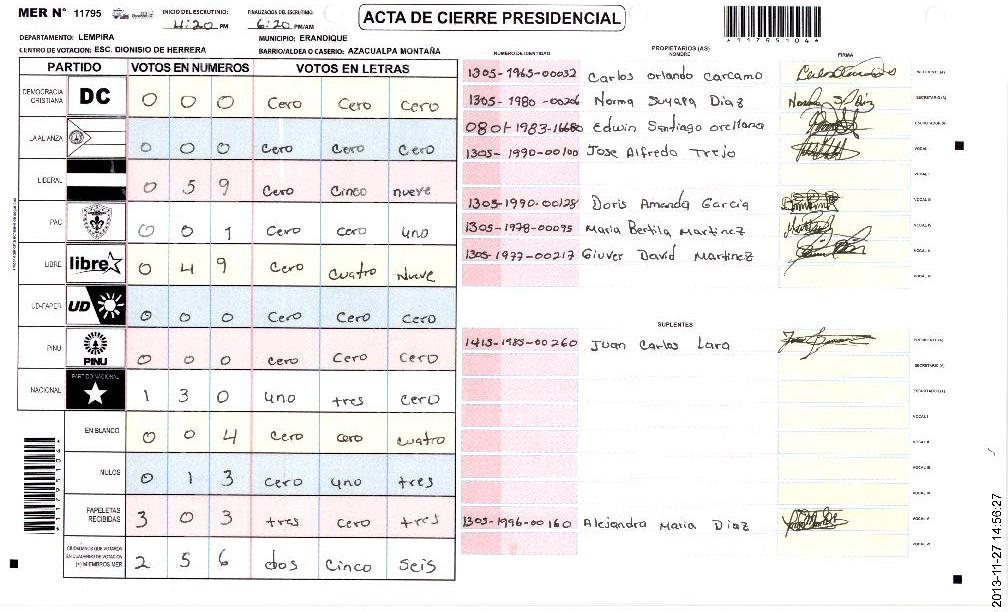 MER N° 11795 INICIO DEL ESCRUTINIO: 4:20 PM FINALIZACION DEL ESCRUTINIO: 6:20 PM/AM ACTA DE CIERRE PRESIDENCIAL
DEPARTAMENTO: LEMPIRA MUNICIPIO: ERANDIQUE
CENTRO DE VOTACION: ESC. DIONISIO DE HERRERA BARRIO/ALDEA O CASERIO: AZACUALPA MONTAÑA
PARTIDO VOTOS EN NUMEROS VOTOS EN LETRAS
DEMOCRACIA CRISTIANA DC 0 0 0 Cero Cero cero
LA ALIANZA 0 0 0 Cero Cero Cero
LIBERAL 0 5 9 Cero Cinco nueve
PAC 0 0 1 Cero cero uno
LIBRE libre 0 4 9 Cero cuatro Nueve
UD-FAPER UD 0 0 0 Cero Cero Cero
PINU PINU 0 0 0 cero Cero Cero
NACIONAL PARTIDO NACIONAL 1 3 0 uno tres cero
EN BLANCO 0 0 4 Cero cero cuatro
NULOS 0 1 3 cero uno tres
PAPELETAS RECIBIDAS 3 0 3 tres Cero tres
CIUDADANOS QUE VOTARON EN CUADERNO DE VOTACION (+) MIEMBROS MER 2 5 6 dos Cinco Seis
NUMERO DE IDENTIDAD PROPIETARIOS (AS) NOMBRE FIRMA
1305-1965-00032 Carlos orlando Carcamo PRESIDENTE (A)
1305-1980-00206 Norma Suyapa Diaz SECRETARIO (A)
0801-1983-16680 Edwin Santiago orellana ESCRUTADOR (A)
1305-1990-00100 Jose Alfredo Trejo VOCAL I
1305-1990-00128 Doris Amanda Garcia
1305-1978-00095 Maria Bertila Martinez
1305-1977-00217 Giuver David Martinez
SUPLENTES
1413-1985-00260 Juan Carlos Lara PRESIDENTE (A)
SECRETARIO (A)
ESCRUTADOR (A)
VOCAL I
VOCAL II
VOCAL III
VOCAL IV
1305-1996-00160 Alejandra Maria Diaz VOCAL V
VOCAL VI
2013-11-27 14:56:27